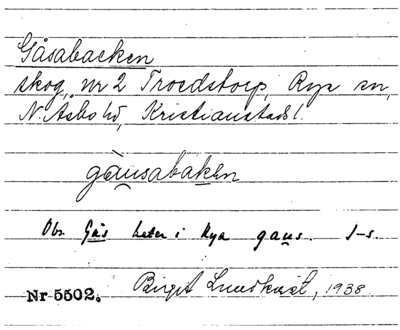 Gåsabacken
skog, nr 2 Troedstorp, Rya sn,
N. Åsbo hd, Kristianstads l.
gàu̯sabaken
Obs. Gås heter i Rya gau̯s. J-s.
Nr 5502. Birgit Lundkvist, 1938.